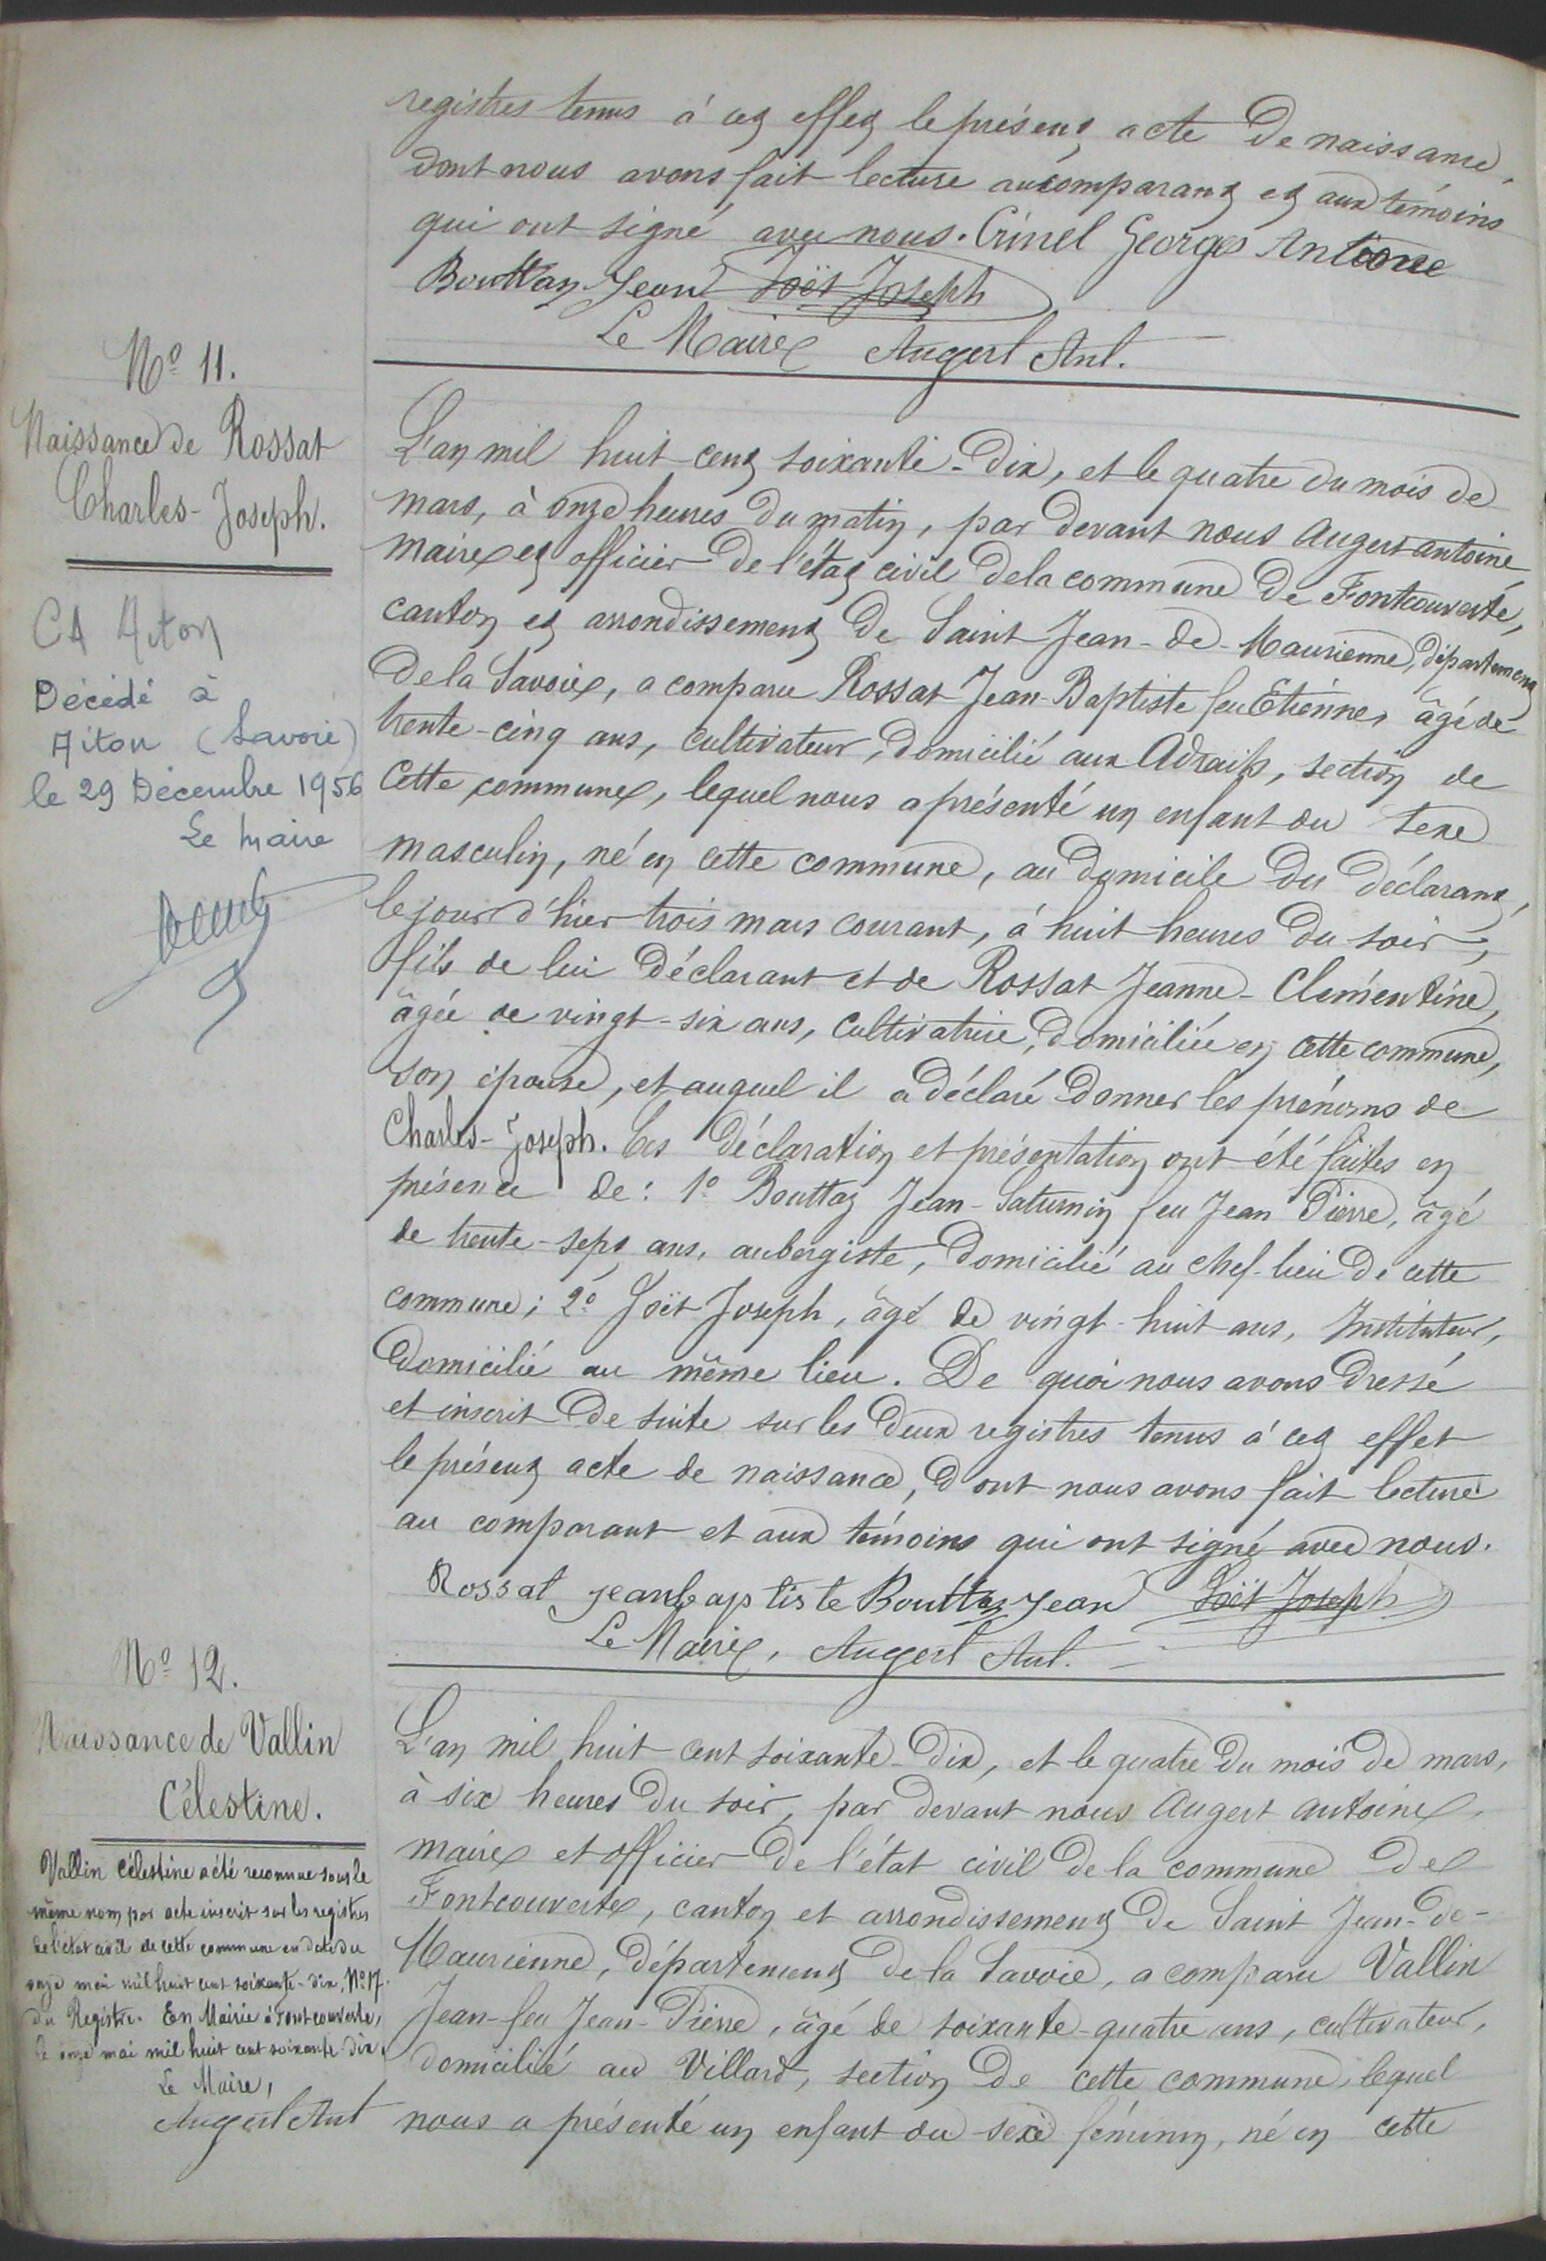 registres tenus à cet effet le présent acte de naissance,
dont nous avons fait lecture au comparant et aux témoins
qui ont signé avec nous. Crinel Georges Antoine
Bouttaz Jean Joët Joseph
Le Maire Augert Ant.
N° 11.
Naissance de Rossat
Charles-Joseph.
CA Aiton
Décédé à
Aiton (Savoie)
le 29 Décembre 1956
Le Maire
L'an mil huit cent soixante-dix, et le quatre du mois de
mars, à onze heures du matin, par devant nous Augert Antoine
maire et officier de l'état civil de la commune de Fontcouverte,
canton et arrondissement de Saint Jean-de-Maurienne, département
de la Savoie, a comparu Rossat Jean-Baptiste feu Etienne, âgé de
trente-cinq ans, cultivateur, domicilié aux Adraits, section de
cette commune, lequel nous a présenté un enfant du sexe
masculin, né en cette commune, au domicile du déclarant,
le jour d'hier trois mars courant, à huit heures du soir,
fils de lui déclarant et de Rossat Jeanne-Clémentine,
âgée de vingt-six ans, cultivatrice, domiciliée en cette commune,
son épouse, et auquel il a déclaré donner les prénoms de
Charles-Joseph. Ces déclaration et présentation ont été faites en
présence de: 1° Bouttaz Jean-Saturnin feu Jean Pierre, âgé
de trente-sept ans, aubergiste, domicilié au chef-lieu de cette
commune; 2° Joët Joseph, âgé de vingt-huit ans, Instituteur,
domicilié au même lieu. De quoi nous avons dressé
et inscrit de suite sur les deux registres tenus à cet effet
le présent acte de naissance, dont nous avons fait lecture
au comparant et aux témoins qui ont signé avec nous.
Rossat jeanbaptiste Bouttaz Jean Joët Joseph
Le Maire, Augert Ant.
N° 12.
Naissance de Vallin
Célestine.
Vallin Célestine a été reconnue sous le
même nom par acte inscrit sur les registres
de l'état civil de cette commune en date du
onze mai mil huit cent soixante-dix, N° 17
du Registre. En Mairie à Fontcouverte,
le onze mai mil huit cent soixante dix.
Le Maire,
Augert Ant
L'an mil huit cent soixante-dix, et le quatre du mois de mars,
à six heures du soir, par devant nous Augert Antoine,
maire et officier de l'état civil de la commune de
Fontcouverte, canton et arrondissement de Saint Jean-de-
Maurienne, département de la Savoie, a comparu Vallin
Jean-feu Jean-Pierre, âgé de soixante-quatre ans, cultivateur,
domicilié au Villard, section de cette commune, lequel
nous a présenté un enfant du sexe féminin, né en cette